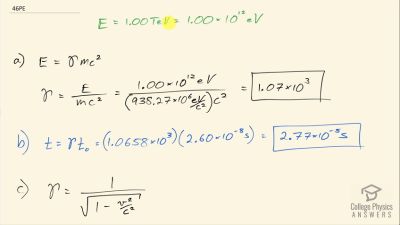 46PE
E = 1.00 TeV = 1.00×10¹² eV
a) E = γmc²
γ = E/mc² = 1.00×10¹² eV/(938.27×10⁶ eV/c²)c² = 1.07×10³
b) t = γt₀ = (1.0658×10³)(2.60×10⁻⁸s) = 2.77×10⁻⁵s
c) γ = 1/√(1 − v²/c²)
College Physics
ANSWERS